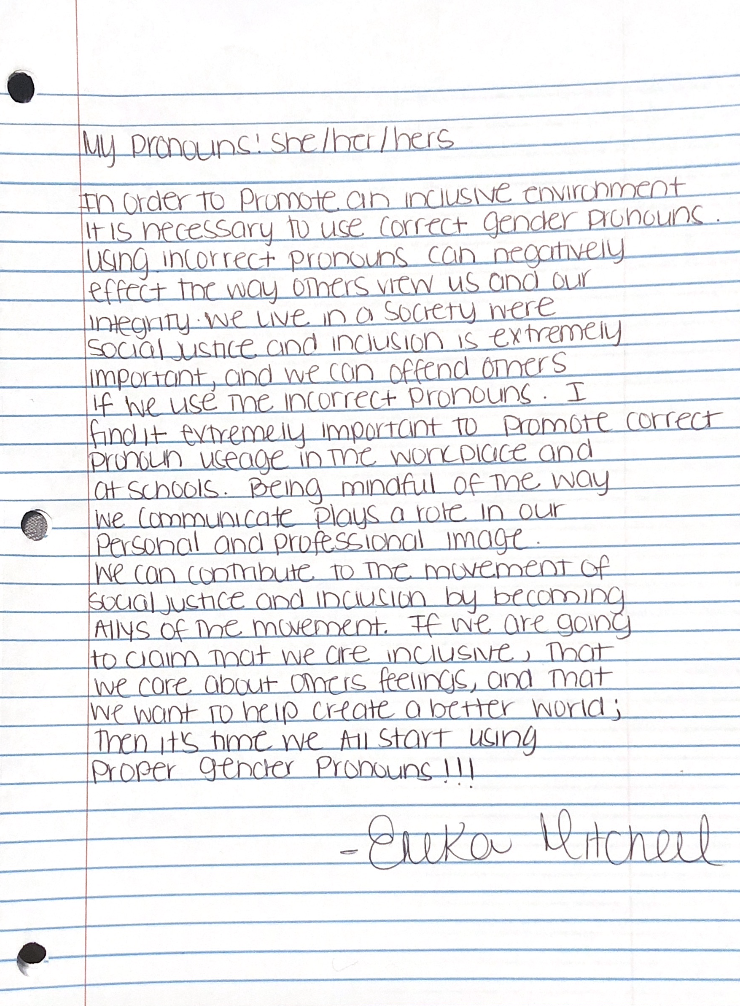 My pronouns: she/her/hers
In order to promote an inclusive environment
it is necessary to use correct gender pronouns.
Using incorrect pronouns can negatively
effect the way others view us and our
integrity. We live in a society were
social justice and inclusion is extremely
important, and we can offend others
if we use the incorrect pronouns. I
find it extremely important to promote correct
pronoun useage in the workplace and
at schools. Being mindful of the way
we communicate plays a role in our
personal and professional image.
We can contribute to the movement of
social justice and inclusion by becoming
Allys of the movement. If we are going
to claim that we are inclusive, that
we care about others feelings, and that
we want to help create a better world;
Then it's time we All start using
proper gender pronouns!!!
-Erika Mitchell